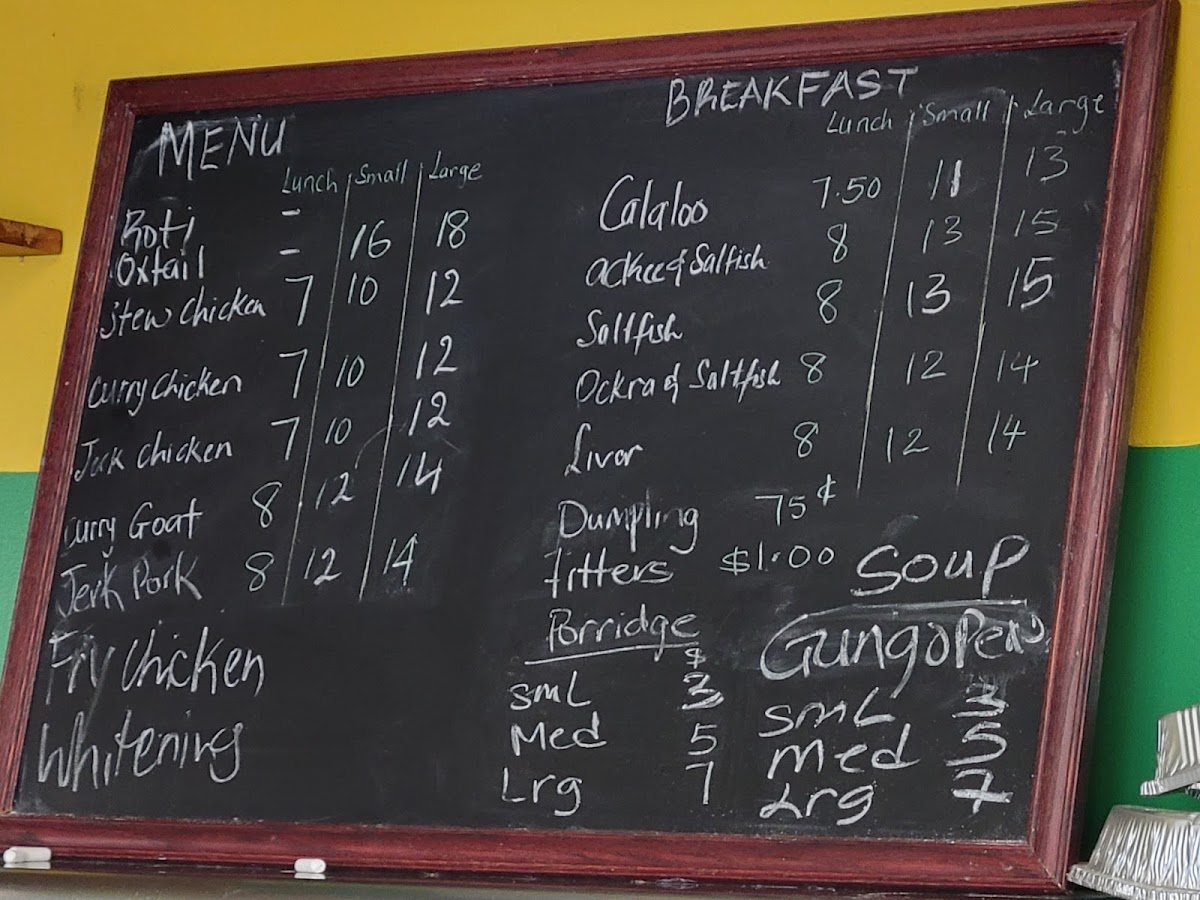 MENU
Lunch | Small | Large
Roti -
Oxtail - 16 18
Stew chicken 7 10 12
curry chicken 7 10 12
Jerk chicken 7 10 12
curry Goat 8 12 14
Jerk Pork 8 12 14
Fry chicken
Whitenings
BREAKFAST
Lunch | Small | Large
Calaloo 7.50 11 13
ackee & Saltfish 8 13 15
Saltfish 8 13 15
Ockra & Saltfish 8 12 14
Livor 8 12 14
Dumpling 75¢
fitters $1.00
Porridge
$
smL 3
Med 5
Lrg 7
Soup
Gungo Peas
smL 3
med 5
Lrg 7